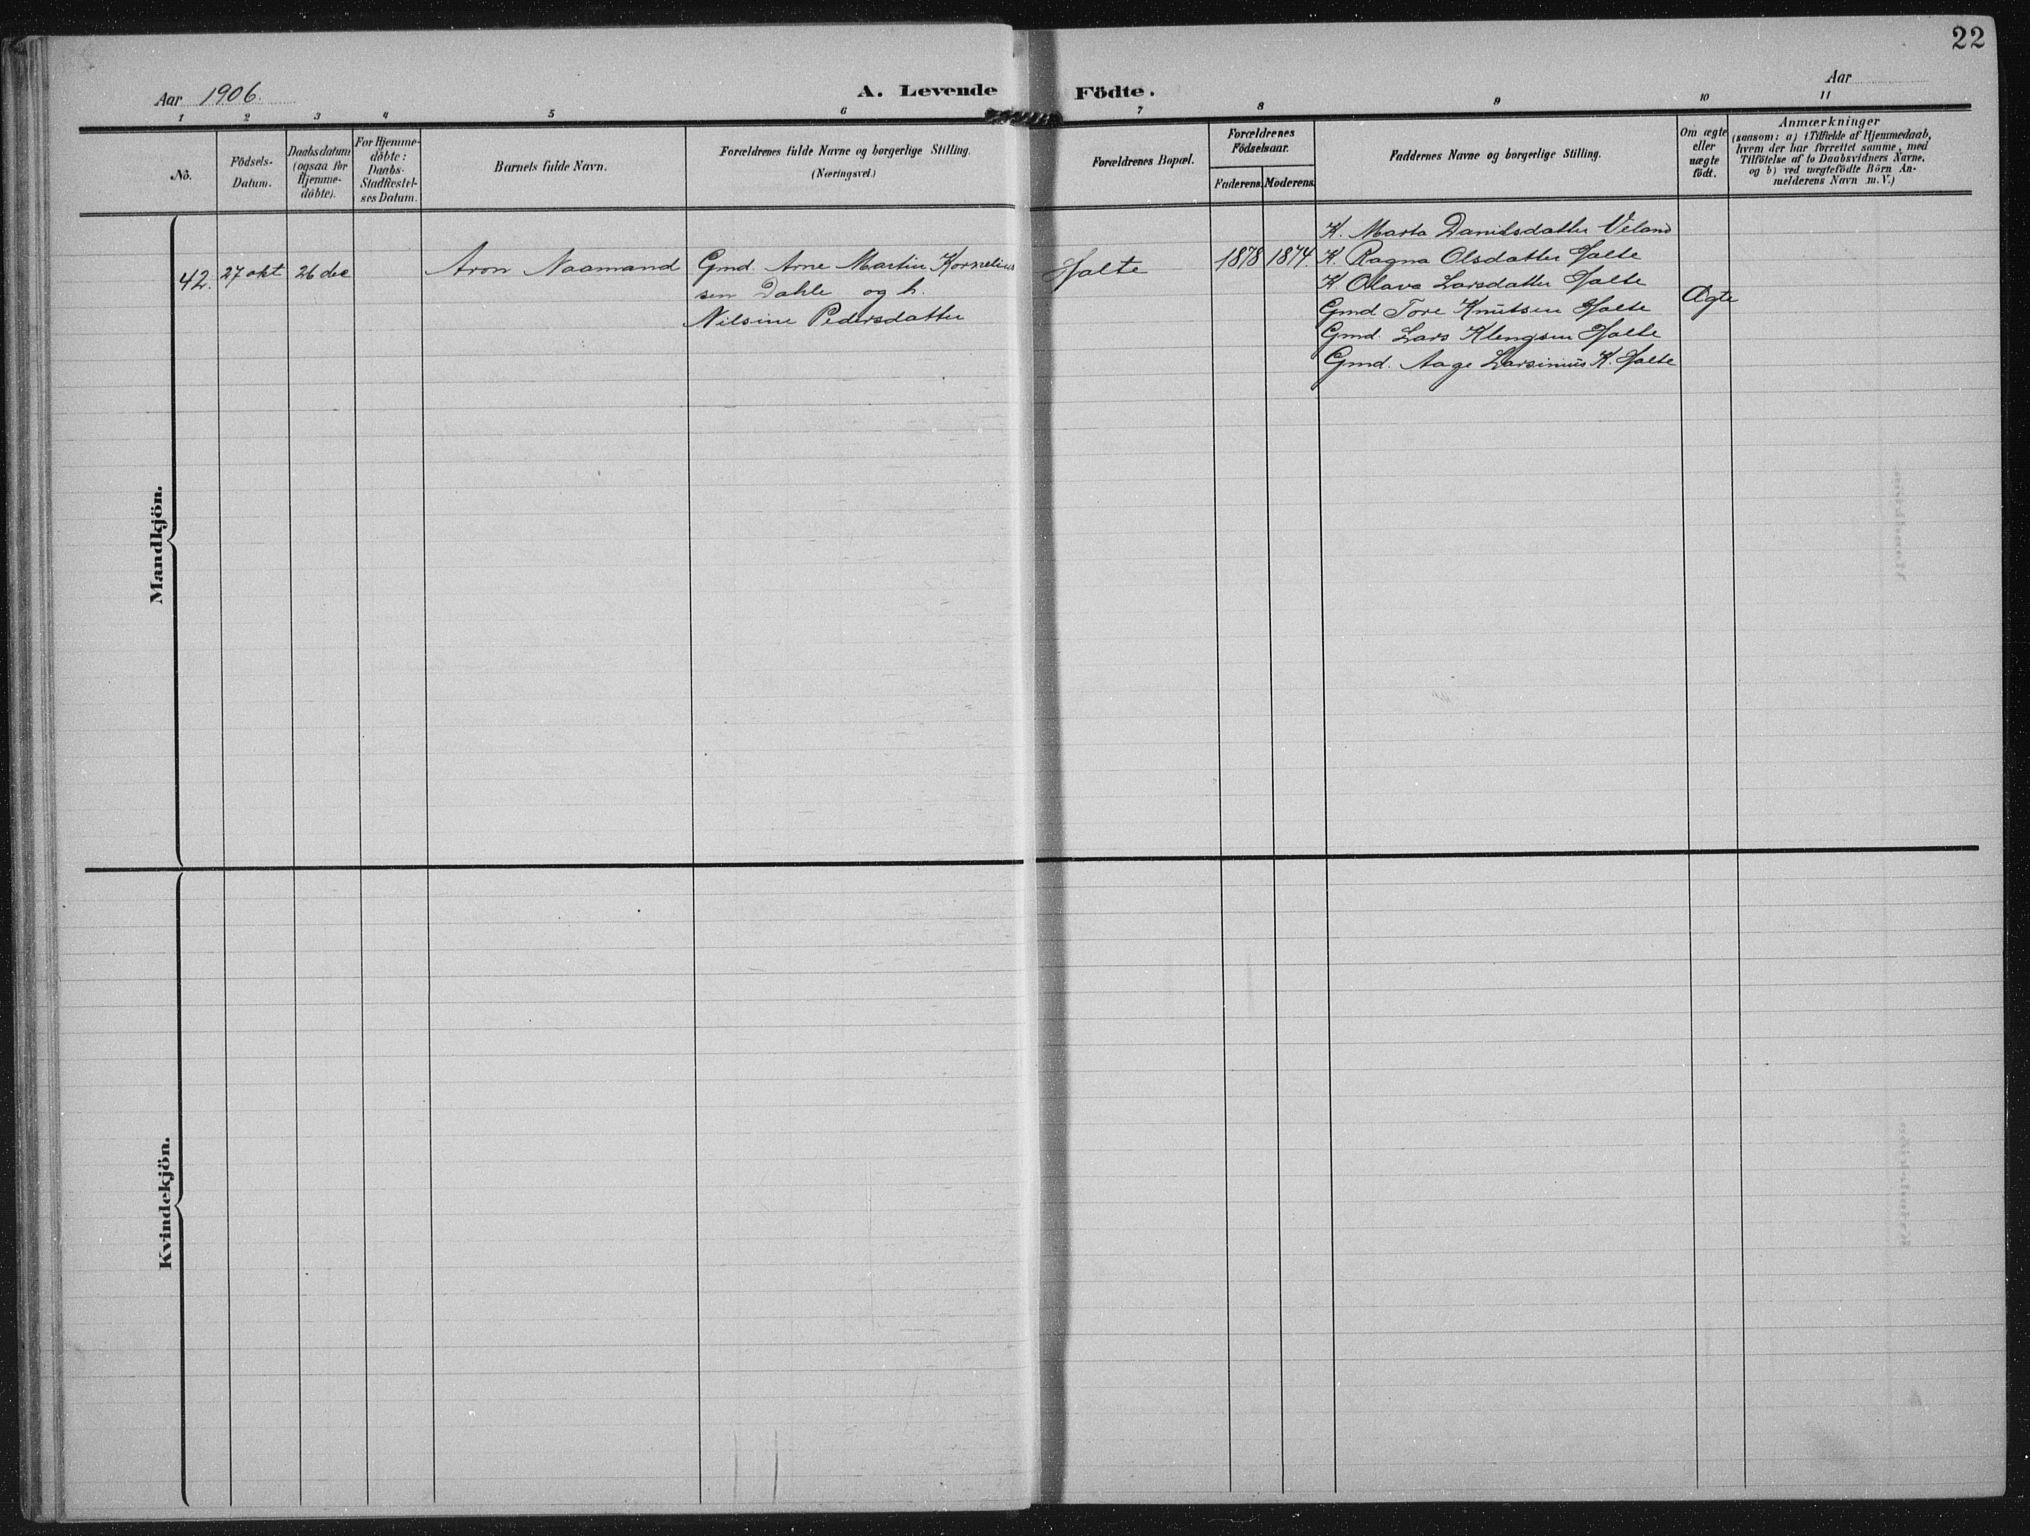 22
Aar 1906. A. Levende Födte. Aar
1 2 3 4 5 6 7 8 9 10 11
Nô.
Födsels-
Datum.
Daabsdatum
(ogsaa for
Hjemme-
döbte).
For Hjemme-
döbte:
Daabs-
Stadfæstel-
ses Datum.
Barnets fulde Navn.
Forældrenes fulde Navne og borgerlige Stilling.
(Næringsvei.)
Forældrenes Bopæl.
Forældrenes
Födselsaar.
Faderens. Moderens.
Faddernes Navne og borgerlige Stilling.
Om ægte
eller
uægte
födt.
Anmærkninger
(saasom: a) i Tilfælde af Hjemmedaab,
hvem der har forrettet samme, med
Tilföielse af to Daabsvidners Navne,
og b) ved uægtefödte Börn An-
melderens Navn m. V.)
Mandkjön.
42. 27 okt 26 dec Aron Naamand
Gmd. Arne Martin Kornelius
sen Dahle og h.
Nilsine Pedersdatter
Holte
1878 1874.
K. Marta Danilsdatter Veland
K. Ragna Olsdatter Holte
K Olava Larsdatter Holte
Gmd Tore Knutsen Holte
Gmd. Lars Klengsen Holte
Gmd. Aage Larsinius K. Holte
Ægte
Kvindekjön.